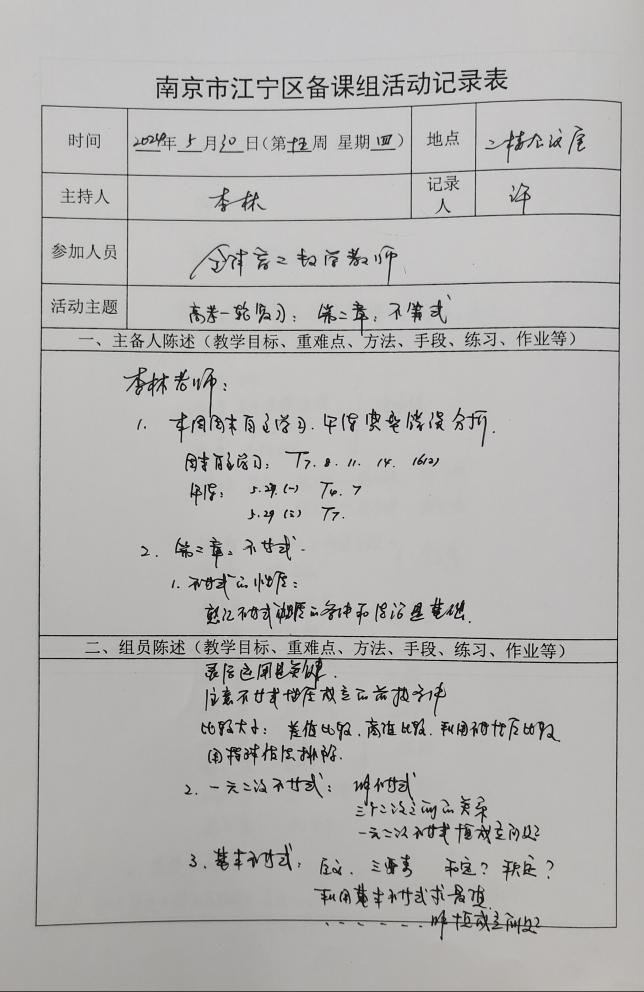 南京市江宁区备课组活动记录表
时间 2024年 5 月 30 日(第十五周 星期四) 地点 二楼会议室
主持人 李林 记录人 许
参加人员 全体高二数学教师
活动主题 高考一轮复习：第二章：不等式
一、主备人陈述（教学目标、重难点、方法、手段、练习、作业等）
李林老师：
1. 本周周末自主学习、午练典型错误分析.
周末自主学习：T7. 8. 11. 14. 16(2)
午练：5.29.(一) T4. 7
5.29 (三) T7.
2. 第二章：不等式.
1. 不等式的性质：
熟记不等式性质的条件和结论是基础.
二、组员陈述（教学目标、重难点、方法、手段、练习、作业等）
灵活运用是关键.
注意不等式性质成立的前提条件
比较大小：差值比较.商值比较.利用性质比较
用特殊值法排除.
2. 一元二次不等式：解不等式
三个二次之间的关系
一元二次不等式恒成立问题
3. 基本不等式：定义、三要素 和定？积定？
利用基本不等式求最值.
. . . . . . 解恒成立问题